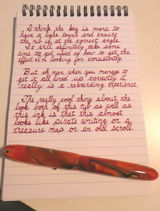 I think the key is more to
have a light touch and ensure
the nib is at the correct angle.
It will definitely take some
time to get used to how to get the
effect I'm looking for consistently.
But oh man, when you manage to
get it all lined up correctly it
really is a rewarding experience.
The really cool thing about the
look of this nib as well as
this ink is that this almost
looks like pirate writing on a
treasure map or an old scroll